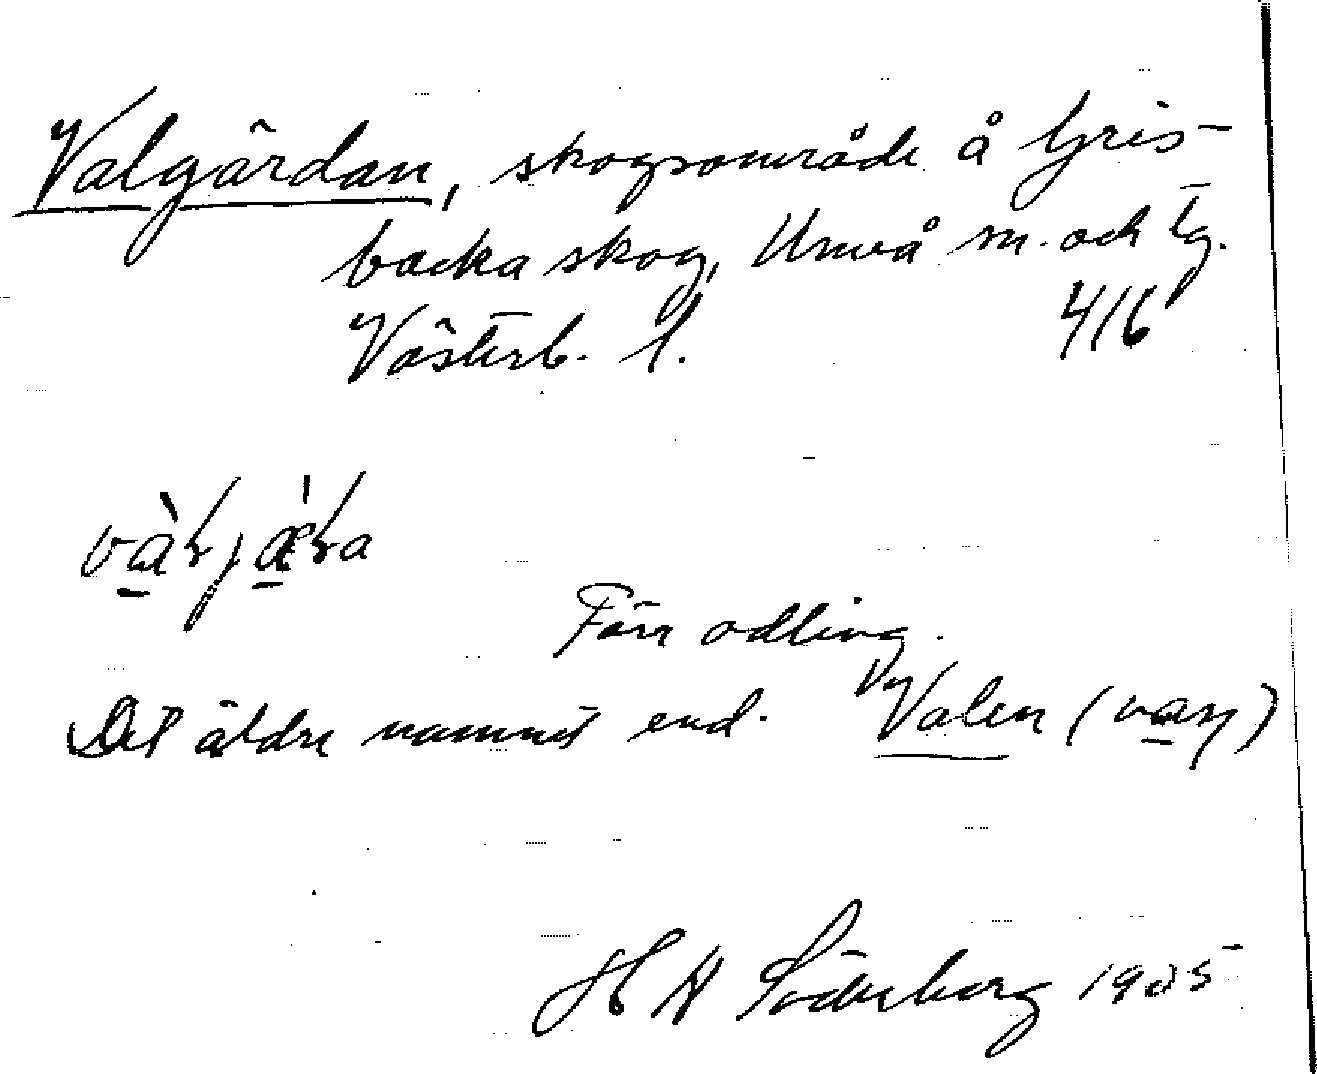 Valgärdan, skogsområde å Gris-
backa skog, Umeå sn. och tg.
Västerb. l. 416
Förr odling.
Det äldre namnet end. Valen (van)
H A Söderberg 1905